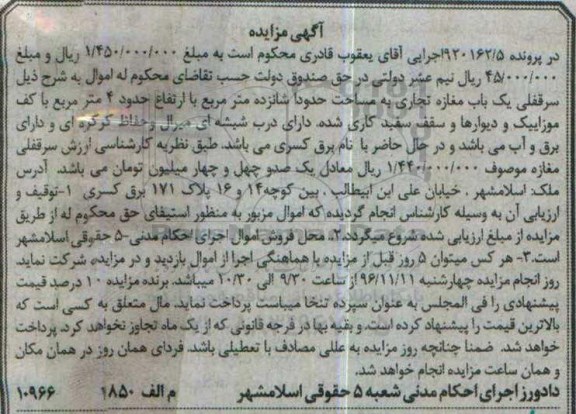 آگهی مزایده
در پرونده ۹۲۰۱۶۲/۵اجرایی آقای یعقوب قادری محکوم است به مبلغ ۱/۴۵۰/۰۰۰/۰۰۰ ریال و مبلغ
۴۵/۰۰۰/۰۰۰ ریال نیم عشر دولتی در حق صندوق دولت حسب تقاضای محکوم له اموال به شرح ذیل
سرقفلی یک باب مغازه تجاری به مساحت حدودا شانزده متر مربع با ارتفاع حدود ۴ متر مربع با کف
موزاییک و دیوارها و سقف سفید کاری شده، دارای درب شیشه ای میرال وحفاظ کرکره ای و دارای
برق و آب می باشد و در حال حاضر با نام برق کسری می باشد. طبق نظریه کارشناسی ارزش سرقفلی
مغازه موصوف ۱/۴۴۰/۰۰۰/۰۰۰ ریال معادل یک صدو چهل و چهار میلیون تومان می باشد. آدرس
ملک: اسلامشهر . خیابان علی ابن ابیطالب . بین کوچه۱۴ و ۱۶ پلاک ۱۷۱ برق کسری ۱-توقیف و
ارزیابی آن به وسیله کارشناس انجام گردیده که اموال مزبور به منظور استیفای حق محکوم له از طریق
مزایده از مبلغ ارزیابی شده شروع میگردد.۲- محل فروش اموال اجرای احکام مدنی ۵- حقوقی اسلامشهر
است.۳- هر کس میتوان ۵ روز قبل از مزایده با هماهنگی اجرا از اموال بازدید و در مزایده شرکت نماید.
روز انجام مزایده چهارشنبه ۹۶/۱۱/۱۱ از ساعت ۹/۳۰ الی ۱۰/۳۰ میباشد. برنده مزایده ۱۰ درصد قیمت
پیشنهادی را فی المجلس به عنوان سپرده تنخا میبایست پرداخت نماید. مال متعلق به کسی است که
بالاترین قیمت را پیشنهاد کرده است. و بقیه بها در فرجه قانونی که از یک ماه تجاوز نخواهد کرد. پرداخت
خواهد شد. ضمنا چنانچه روز مزایده به عللی مصادف با تعطیلی باشد. فردای همان روز در همان مکان
و همان ساعت مزایده انجام خواهد شد.
دادورز اجرای احکام مدنی شعبه ۵ حقوقی اسلامشهر م الف ۱۸۵۰ ۱۰۹۶۶